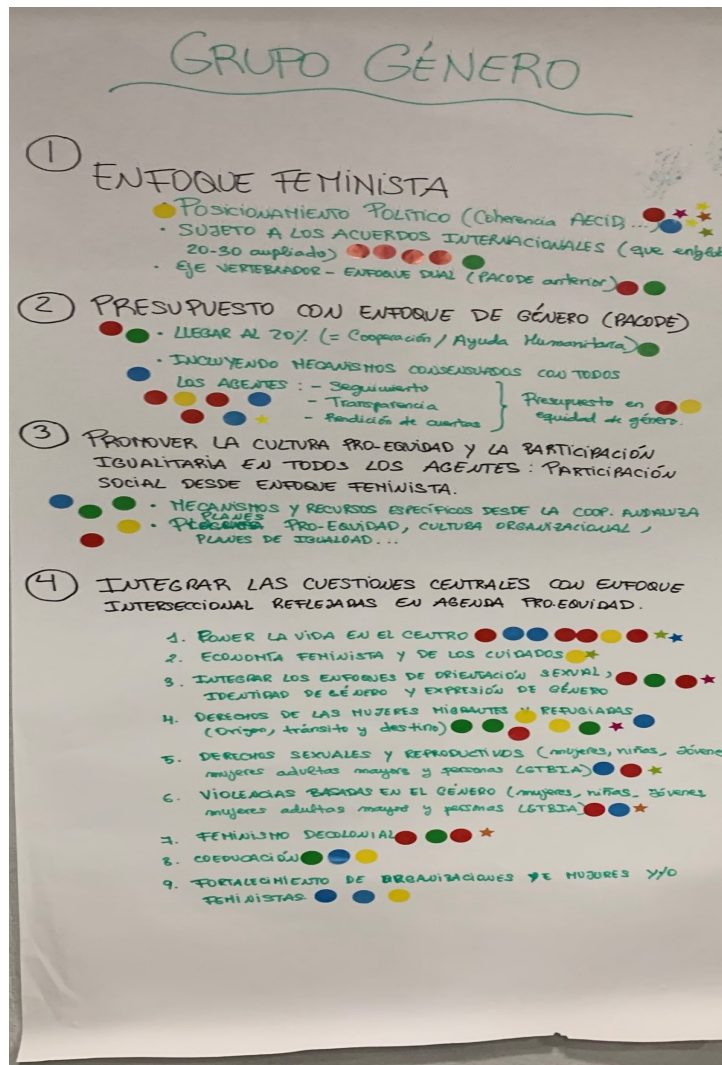 GRUPO GÉNERO
1 ENFOQUE FEMINISTA
· POSICIONAMIENTO POLÍTICO (Coherencia AECID, ...)
· SUJETO A LOS ACUERDOS INTERNACIONALES (que
20-30 ampliado)
· EJE VERTEBRADOR - ENFOQUE DUAL (PACODE anterior)
2 PRESUPUESTO CON ENFOQUE DE GÉNERO (PACODE)
· LLEGAR AL 20% (= Cooperación / Ayuda Humanitaria)
· INCLUYENDO MECANISMOS CONSENSUADOS CON TODOS
LOS AGENTES : - Seguimiento
- Transparencia
- Rendición de cuentas
Presupuesto en
equidad de género.
3 PROMOVER LA CULTURA PRO-EQUIDAD Y LA PARTICIPACIÓN
IGUALITARIA EN TODOS LOS AGENTES : PARTICIPACIÓN
SOCIAL DESDE ENFOQUE FEMINISTA.
· MECANISMOS Y RECURSOS ESPECÍFICOS DESDE LA COOP. ANDALUZA
· PLANES PRO-EQUIDAD, CULTURA ORGANIZACIONAL,
PLANES DE IGUALDAD...
4 INTEGRAR LAS CUESTIONES CENTRALES CON ENFOQUE
INTERSECCIONAL REFLEJADAS EN AGENDA PRO-EQUIDAD.
1. PONER LA VIDA EN EL CENTRO
2. ECONOMÍA FEMINISTA Y DE LOS CUIDADOS
3. INTEGRAR LOS ENFOQUES DE ORIENTACIÓN SEXUAL,
IDENTIDAD DE GÉNERO Y EXPRESIÓN DE GÉNERO
4. DERECHOS DE LAS MUJERES MIGRANTES Y REFUGIADAS
(Origen, tránsito y destino)
5. DERECHOS SEXUALES Y REPRODUCTIVOS (mujeres, niñas, jóvene
mujeres adultas mayores y personas LGTBIA)
6. VIOLENCIAS BASADAS EN EL GÉNERO (mujeres, niñas, jóvenes
mujeres adultas mayores y personas LGTBIA)
7. FEMINISMO DECOLONIAL
8. COEDUCACIÓN
9. FORTALECIMIENTO DE ORGANIZACIONES DE MUJERES Y/O
FEMINISTAS